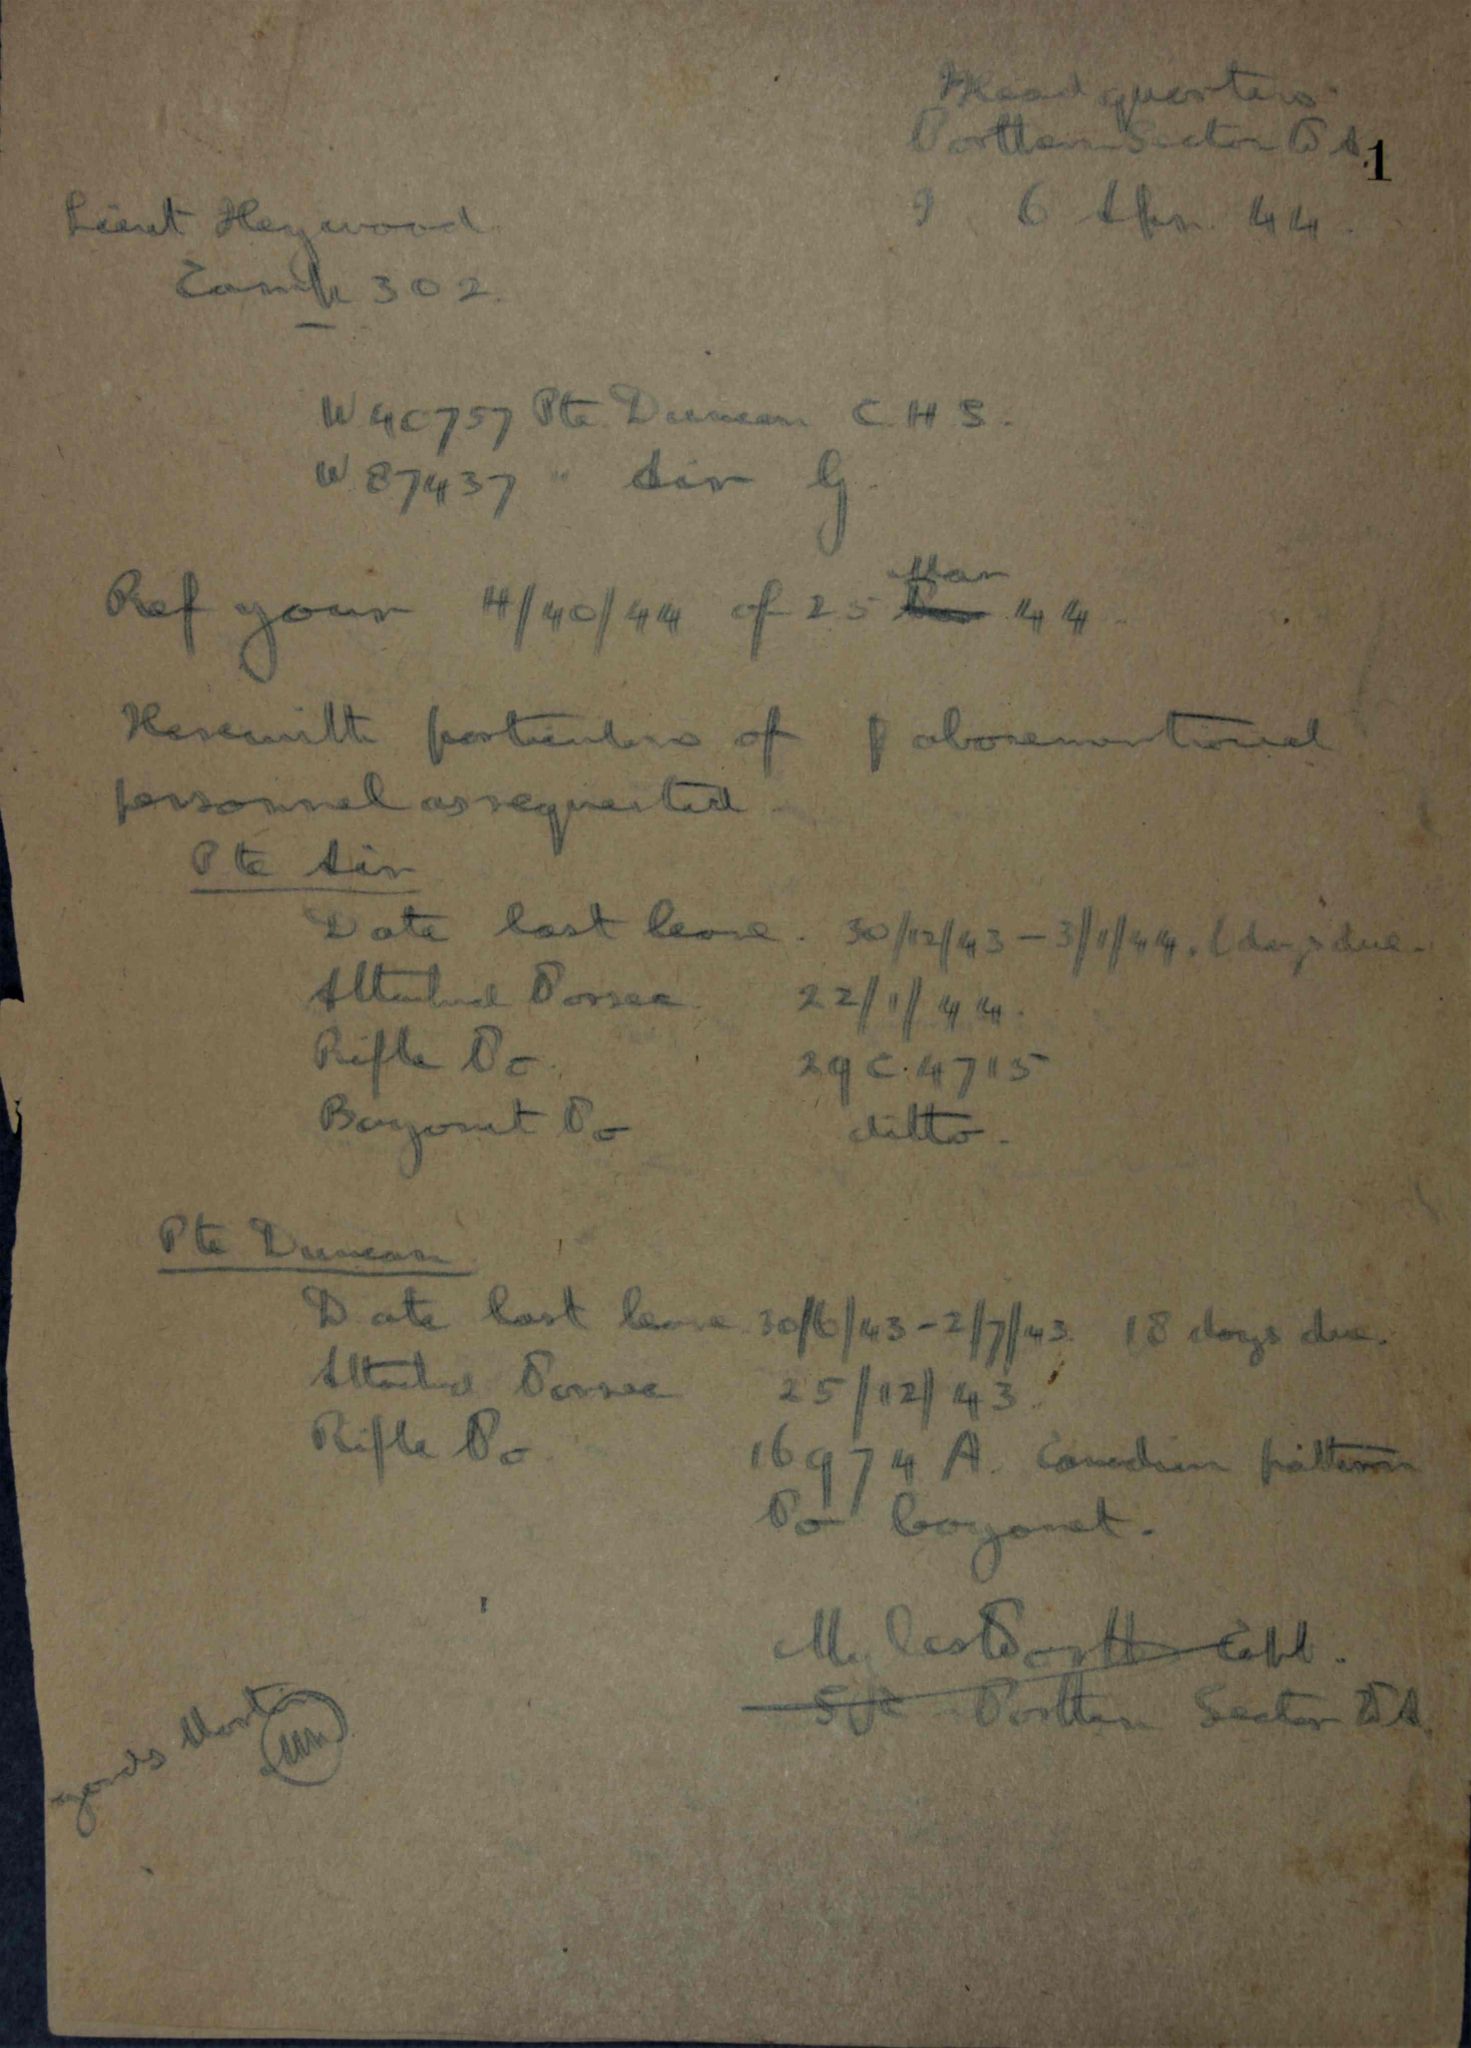 Headquarters
Northern Sector W A.
1
Lieut Heywood
6 Apr. 44.
Camp 302.
W 40757 Pte Duncan C. H S.
W 87437 " Air G.
Ref your H/40/44 of 25 Mar 44.
Herewith particulars of abovementioned
personnel as requested.
Pte Air
Date last leave. 30/12/43 - 3/1/44. days due.
Attached Norsec. 22/1/44.
Rifle No. 29 C. 4715
Bayonet No ditto.
Pte Duncan
Date last leave 30/6/43 - 2/7/43. 18 days due.
Attached Norsec 25/12/43.
Rifle No. 16974 A. Canadian pattern
No bayonet.
Myles North Capt.
Northern Sector W A.